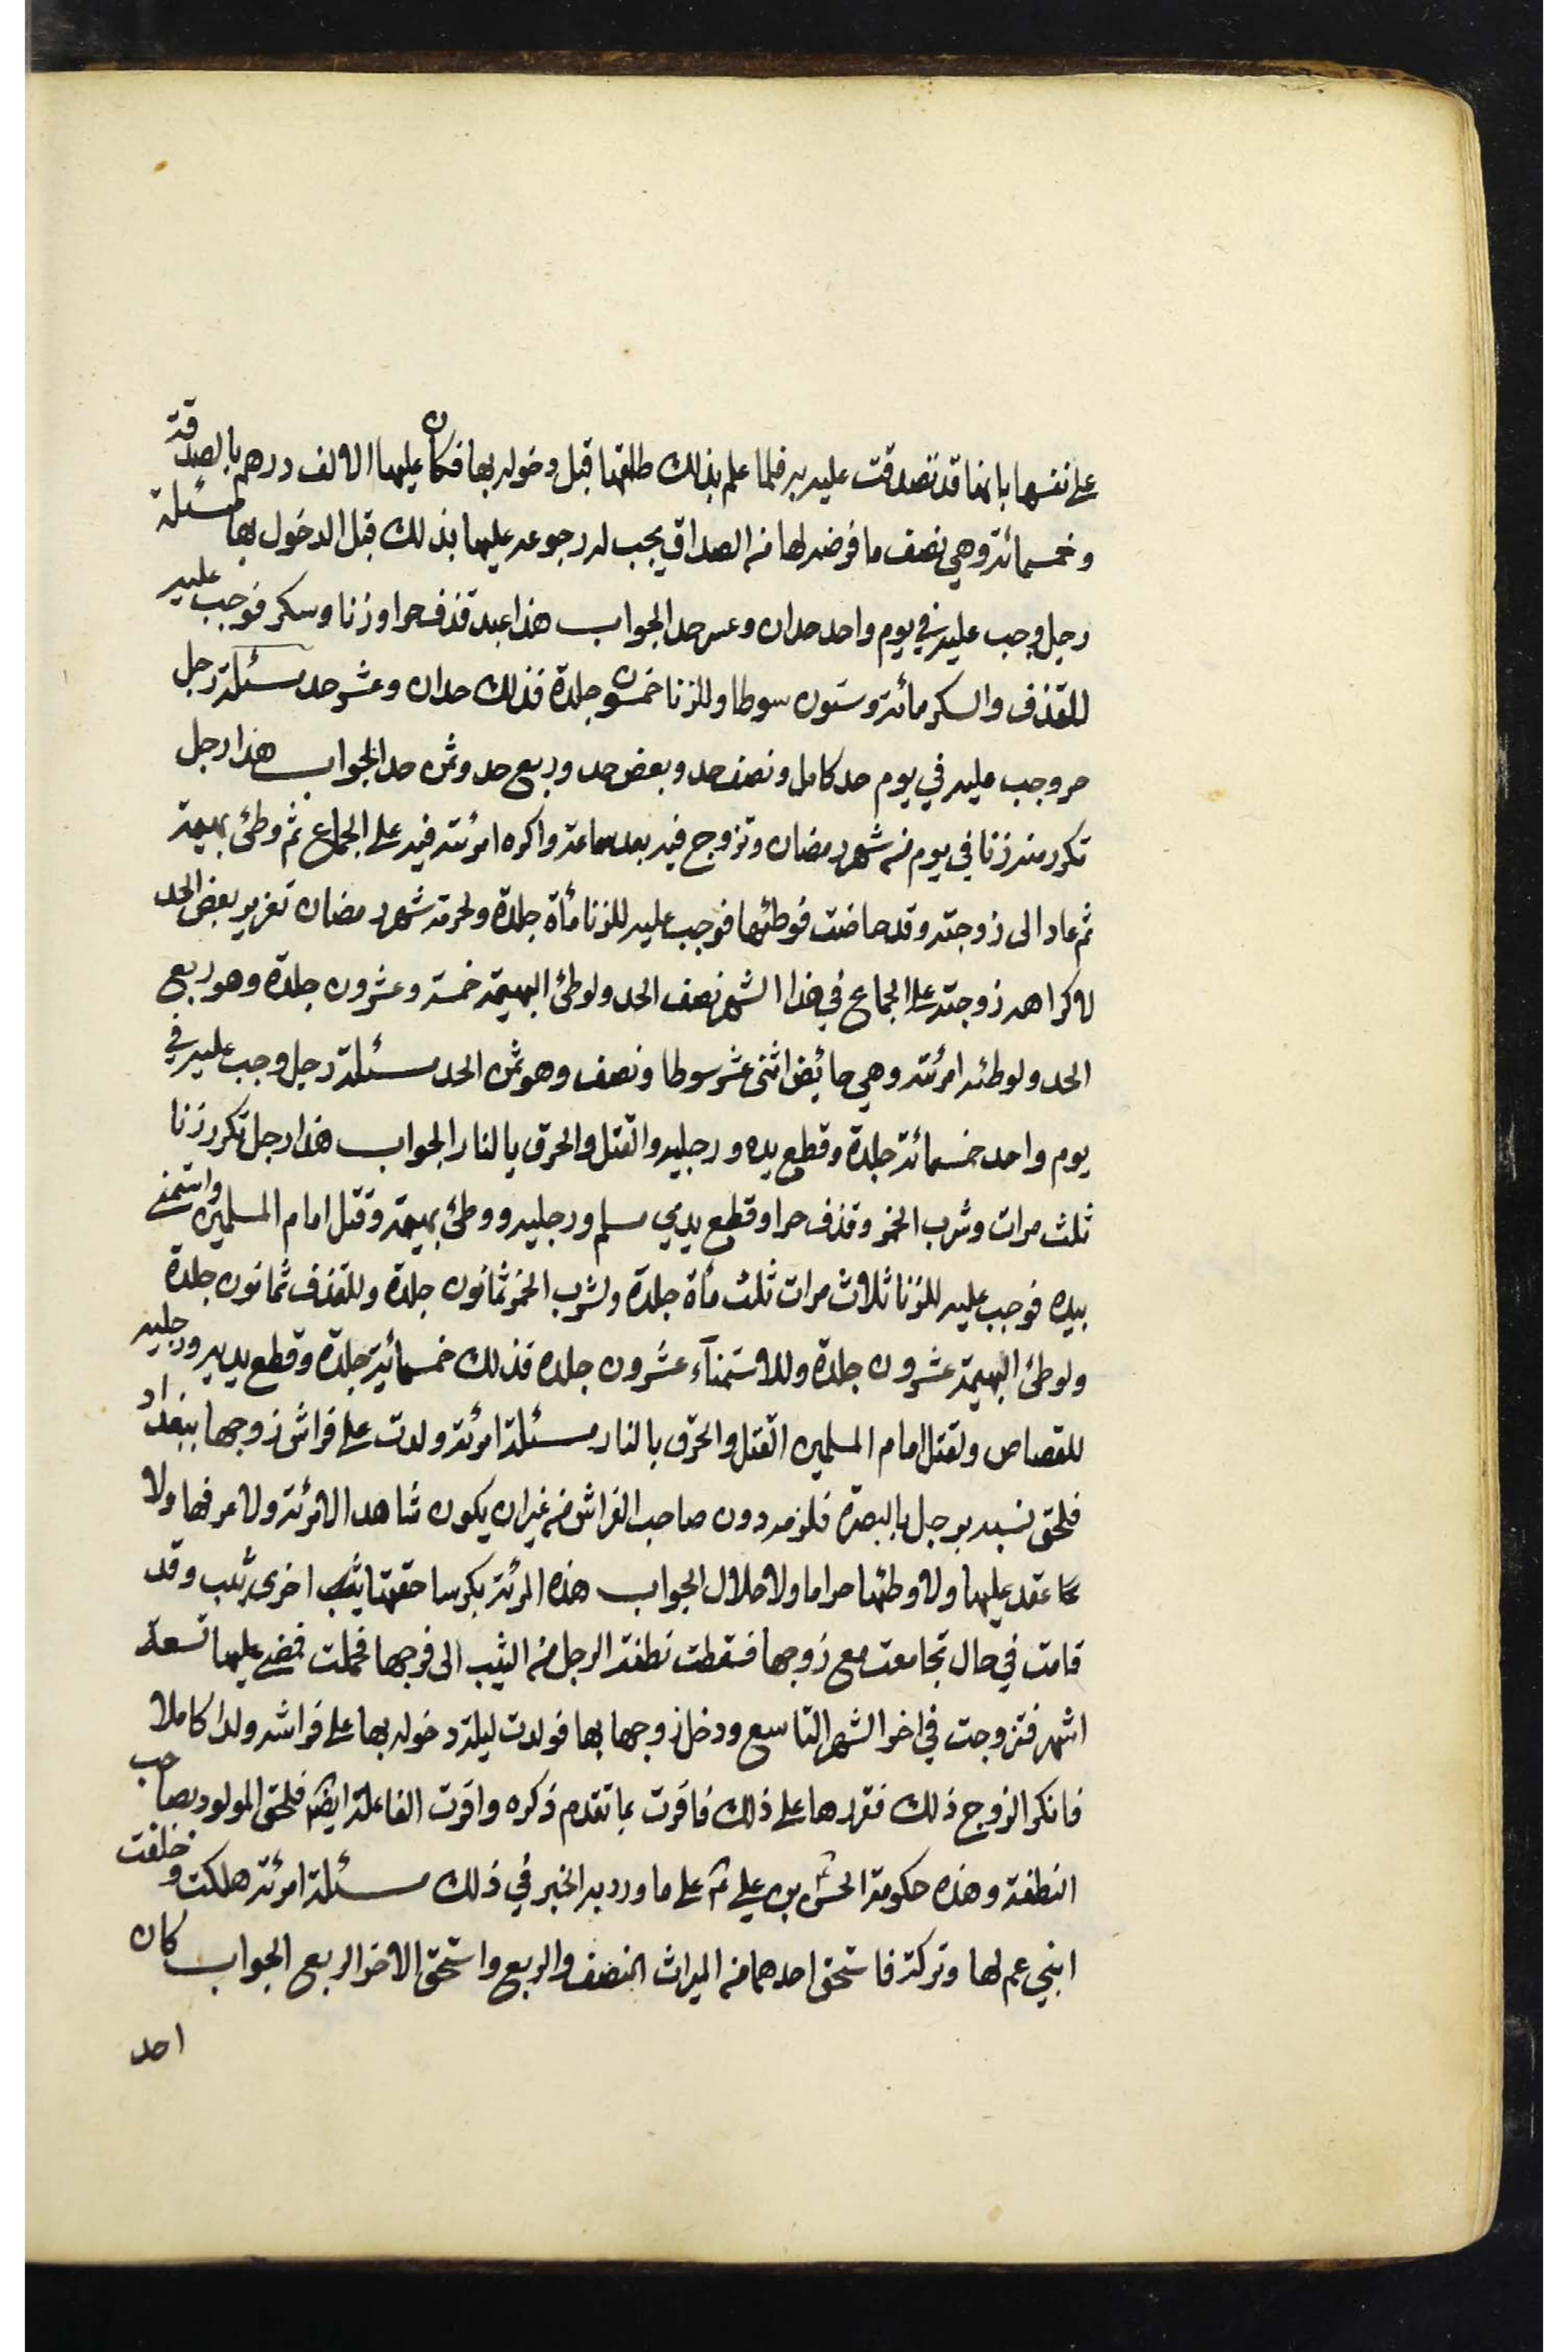 على نفسها بانها قد تصدقت عليه به فلما علم بذلك طلقها قبل دخوله بها فكان عليها الالف درهم بالصدقة
وخمسمائة وهي نصف ما فرضه لها من الصداق يجب له رجوعه عليها بذلك قبل الدخول بها مسئلة
رجل وجب عليه في يوم واحد حدان وعشر حد الجواب هذا عبد قذف حرا وزنا وسكر فوجب عليه
للقذف والسكر مائة وستون سوطا وللزنا خمسون جلدة فذلك حدان وعشر حد مسئلة رجل
حر وجب عليه في يوم حد كامل ونصف حد وبعض حد وربع حد وثمن حد الجواب هذا رجل
تكرر منه زنا في يوم من شهر رمضان وتزوج فيه بعد ساعة واكره امرئته فيه على الجماع ثم وطئ بهيمة
ثم عاد الى زوجته وقد حاضت فوطئها فوجب عليه للزنا مأة جلدة ولحرمة شهر رمضان تعزير بعض الحد
لاكراهه زوجته على الجماع في هذا الشهر نصف الحد ولوطئ البهيمة خمسة وعشرون جلدة وهو ربع
الحد ولوطئه امرئته وهي حائض اثنى عشر سوطا ونصف وهو ثمن الحد مسئلة رجل وجب عليه في
يوم واحد خمسمائة جلدة وقطع يده ورجليه والقتل والحرق بالنار الجواب هذا رجل تكرر زنا
ثلث مرات وشرب الخمر وقذف حرا وقطع يدي مسلم ورجليه ووطئ بهيمة وقتل امام المسلمين واستمنى
بيده فوجب عليه للزنا ثلاث مرات ثلث مأة جلدة ولشرب الخمر ثمانون جلدة وللقذف ثمانون جلدة
ولوطئ البهيمة عشرون جلدة وللاستمنآء عشرون جلده فذلك خمسمائية جلدة وقطع يديه ورجليه
للقصاص ولقتل امام المسلمين القتل والحرق بالنار مسئلة امرئة ولدت على فراش زوجها ببغداد
فلحق نسبه برجل بالبصرة فلزمه دون صاحب الفراش من غير ان يكون شاهد الامرئة ولا عرفها ولا
عقد عليها ولا وطئها حراما ولا حلال الجواب هذه المرئة بكر ساحقتها اخرى ثيب وقد
قامت في حال تجامعت مع زوجها فسقطت نطفة الرجل من الثيب الى فرجها فحملت فمضى عليها تسعة
اشهر فتزوجت في اخر الشهر التاسع ودخل زوجها بها فولدت ليلة دخوله بها على فراشه ولدا كاملا
فانكر الزوج ذلك فقررها على ذلك فاقرت بما تقدم ذكره واقرت الفاعلة ايضا فلحق المولود بصاحب
النطفة وهذه حكومة الحسن بن علي ع على ما ورد به الخبر في ذلك مسئلة امرئة هلكت وخلفت
ابني عم لها وتركة فاستحق احدهما من الميراث النصف والربع واستحق الاخر الربع الجواب كان
احد